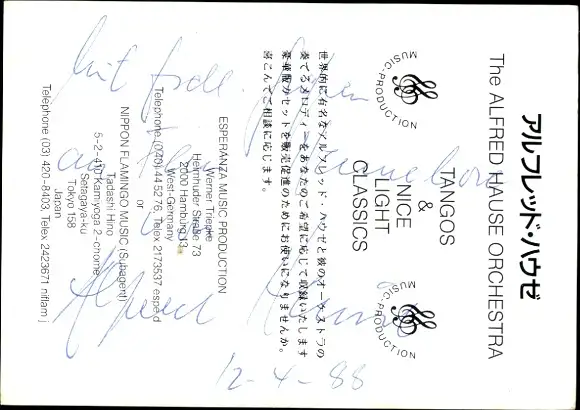 アルフレッド・ハウゼ
The ALFRED HAUSE ORCHESTRA
MUSIC-PRODUCTION
TANGOS
&
NICE
LIGHT
CLASSICS
MUSIC-PRODUCTION
世界的に有名なアルフレッド・ハウゼと彼のオーケストラの
奏でるメロディーをあなたのご希望に応じて収録いたします
豪華版カセットを販売促進のためにお使いになりませんか。
喜こんでご相談に応じます。
ESPERANZA MUSIC PRODUCTION
Werner Triepke
Hellbruder Straße 73
2000 Hamburg 33
West-Germany
Telephone (040) 44 52 76, Telex 2173537 espa d
or
NIPPON FLAMINGO MUSIC (Subagent)
Tadashi Hino
5-2-410 Kamiyoga 2-chome
Setagaya-ku
Tokyo 158
Japan
Telephone (03) 420-8403, Telex 2423671 niflam j
mit
Alfred Hause
12-4-88